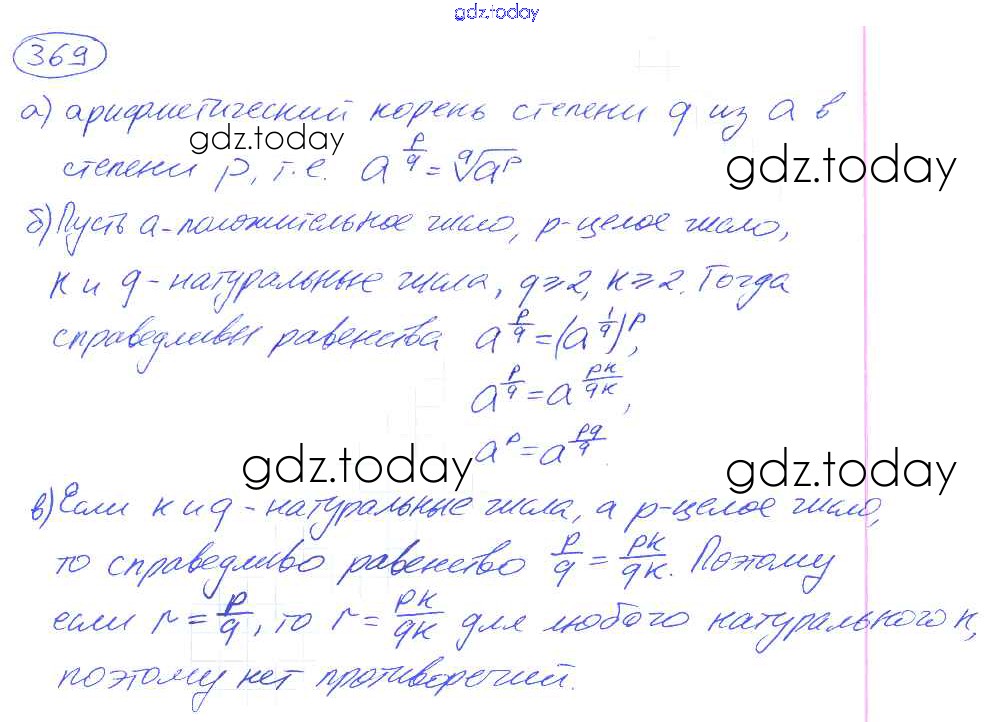 gdz.today
369
а) арифметический корень степени q из a в
gdz.today gdz.today
степени p, т.е. a^(p/q) = ᑫ√(a^p)
б) Пусть a - положительное число, p - целое число,
к и q - натуральные числа, q ⩾ 2, к ⩾ 2. Тогда
справедливы равенства a^(p/q) = (a^(1/q))^p,
a^(p/q) = a^(pк/qк),
a^p = a^(pq/q).
gdz.today gdz.today
в) Если к и q - натуральные числа, а p - целое число,
то справедливо равенство p/q = pк/qк. Поэтому
если r = p/q, то r = pк/qк для любого натурального к,
поэтому нет противоречий.